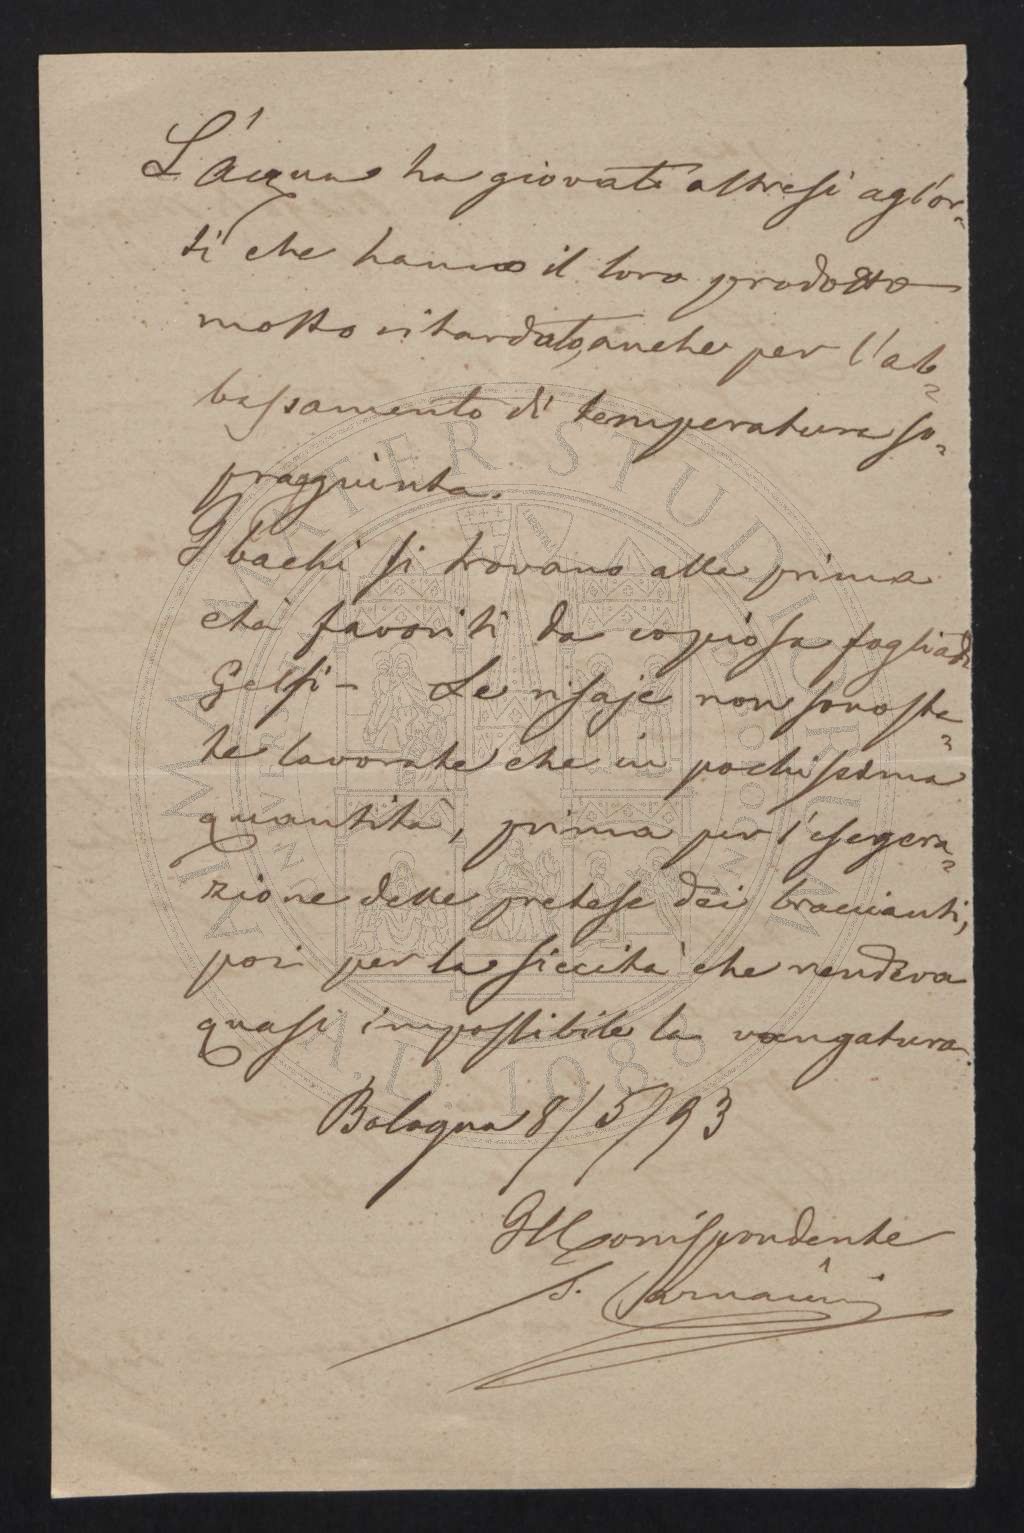 L'acqua ha giovato altresì agl'or-
ti che hanno il loro prodotto
molto ritardato, anche per l'ab-
bassamento di temperatura so-
praggiunta.
I bachi si trovano alla prima
età favoriti da copiosa foglia di
Gelsi - Le risaje non sono sta-
te lavorate che in pochissima
quantità, prima per l'esegera-
zione delle pretese dei braccianti,
poi per la siccità che rendeva
quasi impossibile la vangatura.
Bologna 8/5/93
Il Corrispondente
ALMA MATER STUDIORUM
A.D. 1088